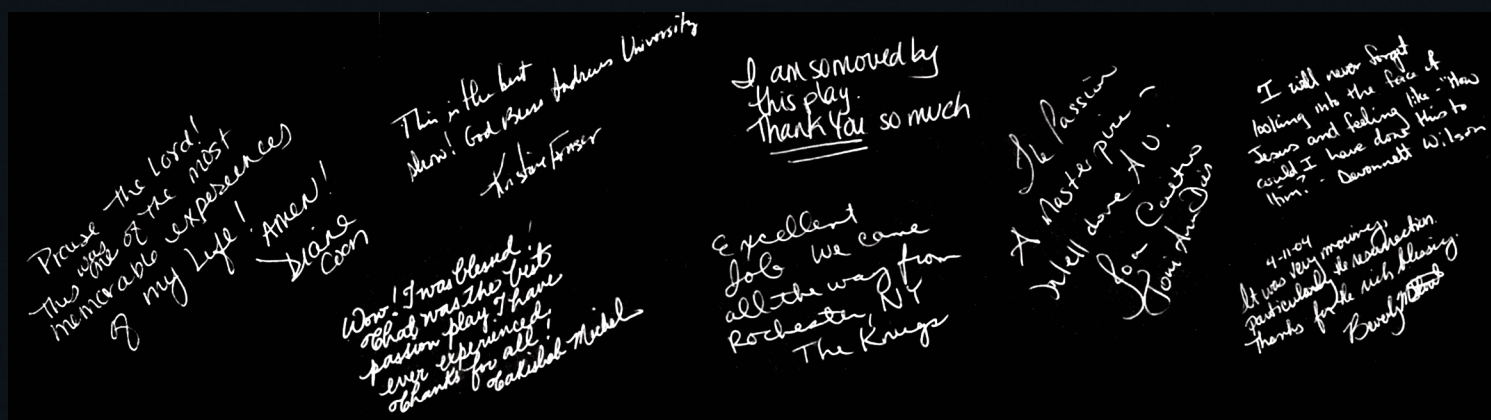 Praise the Lord!
This was one of the most
memorable experiences
of my Life! Amen!
Diane
Coon
This is the best
show! God Bless Andrews University
Wow! I was blessed!
That was the best
passion play I have
ever experienced.
Thanks for all!
Michel
I am so moved by
this play.
Thank You so much
Excellent
Job We came
all the way from
Rochester, NY
The Kruegs
The Passion
A Master piece -
Well done AU.
I will never forget
looking into the face of
Jesus and feeling like - "How
could I have done this to
Him?" - Devonnett Wilson
4-11-04
It was very moving,
particularly the resurrection.
Thanks for the rich blessing.
Beverly